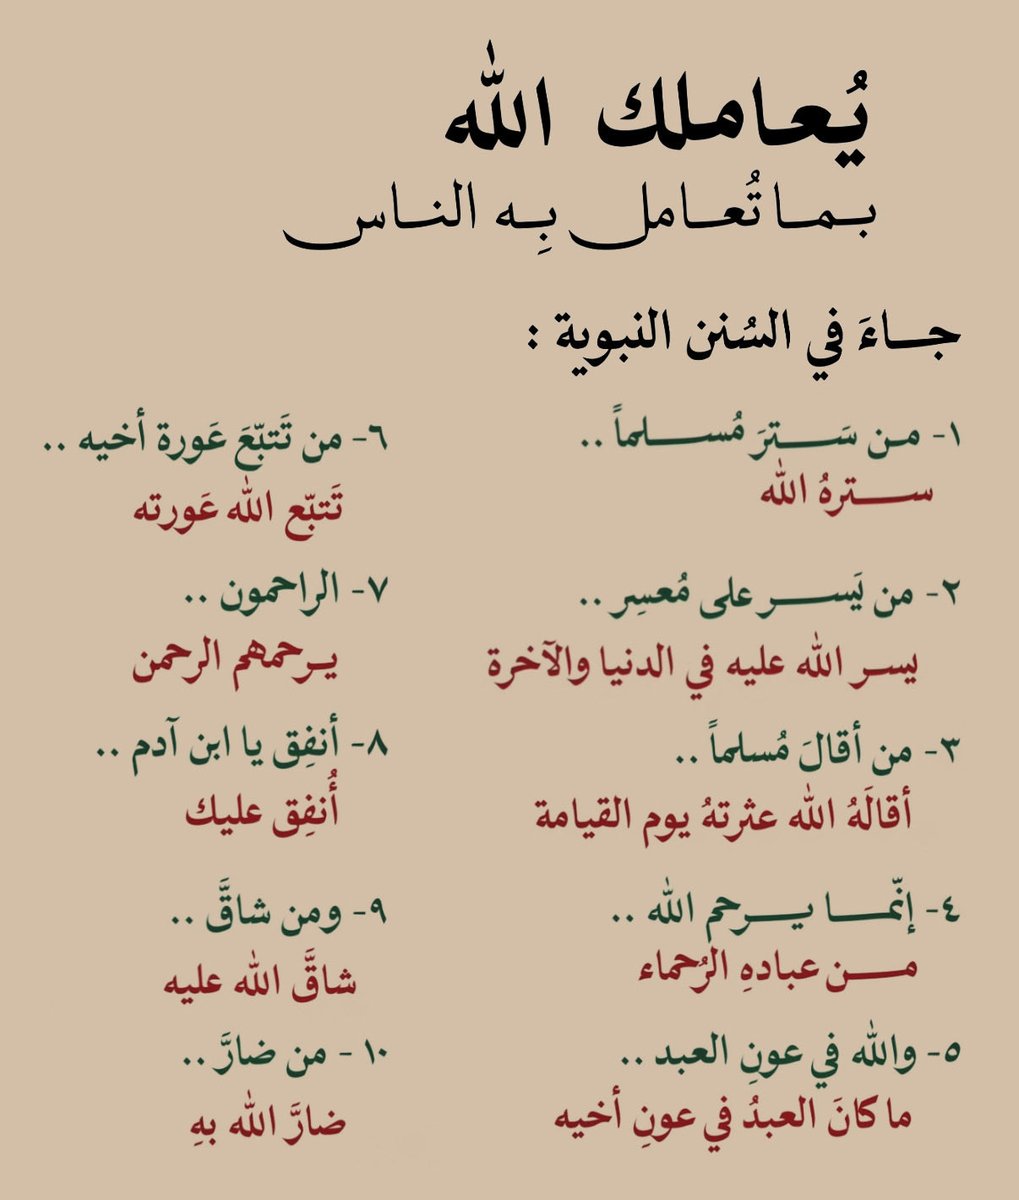 يُعاملك الله
بما تُعامل بِه الناس
جاءَ في السُنن النبوية :
١- من سَترَ مُسلماً ..
سترهُ الله
٢- من يَسر على مُعسِر ..
يسر الله عليه في الدنيا والآخرة
٣- من أقالَ مُسلماً ..
أقالَهُ الله عثرتهُ يوم القيامة
٤- إنّما يرحم الله ..
من عبادهِ الرُحماء
٥- والله في عونِ العبد ..
ما كانَ العبدُ في عونِ أخيه
٦- من تَتبّعَ عَورة أخيه ..
تَتبّع الله عَورته
٧- الراحمون ..
يرحمهم الرحمن
٨- أنفِق يا ابن آدم ..
أُنفِق عليك
٩- ومن شاقَّ ..
شاقَّ الله عليه
١٠ - من ضارَّ ..
ضارَّ الله بهِ